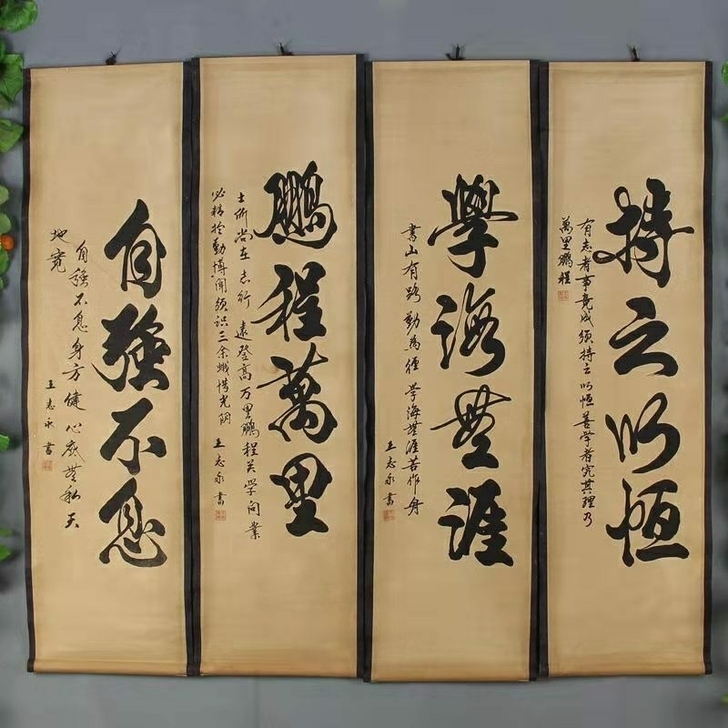 持之以恆
有志者事竟成須持之以恆善學者究其理乃
萬里鵬程
學海無涯
書山有路勤為徑學海無涯苦作舟
王志永書
鵬程萬里
士所尚在志行遠登高万里鵬程关学问業
必精於勤博聞須識三余惜光阴王志永書
自強不息
自強不息身方健心底無私天
地寬
王志永書